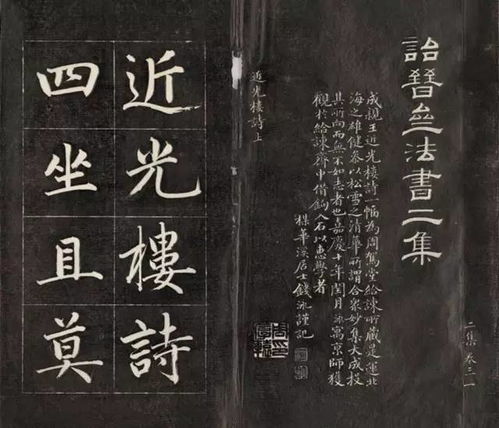 詒晉齋法書二集
二集 卷三 一
成親王近光樓詩一幅為周駕堂給諫所藏是運北
海之雄健參以松雪之清華所謂合衆妙集大成投
其所向而無不如志者也嘉慶十年閏月泳寓京師獲
觀於給諫齋中借鉤入石以惠學者
楳華溪居士錢泳謹記
近光樓詩上
近光樓詩
四坐且莫